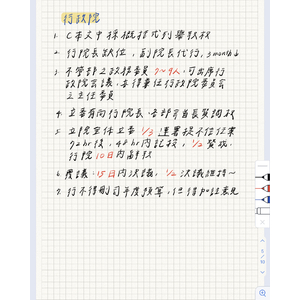 行政院
1. C本文中採概括式列舉
2. 行院長缺位，副院長代行，3 month↓
3. 不管部之政務委員 7~9人，可出席行
政院會議，亦得兼任行政院委員會
主任委員
4. 立委有向行院長、各部首長質詢
5. 立院全體立委 1/3 連署提不信任案
72hr後，48hr內記投，1/2贊成，
行院10日內辭職
6. 覆議：15日內決議，1/2決議維持～
7. 行不得刪司年度預算，但得加註意見